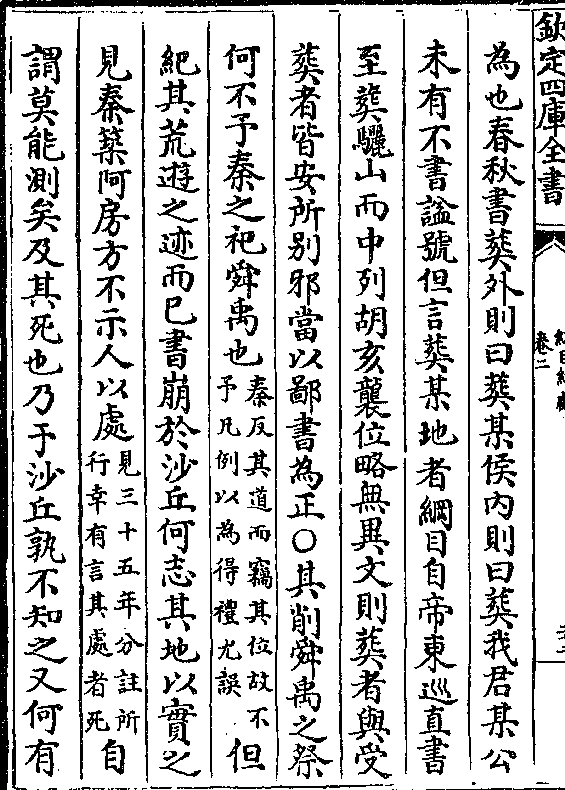 欽定四庫全書
卷二
為也春秋書葬外則曰葬某侯內則曰葬我君某公
未有不書諡號但言葬某地者綱目自帝東巡直書
至葬驪山而中列胡亥襲位略無異文則葬者與受
葬者皆安所别邪當以鄙書為正○其削舜禹之祭
何不予秦之祀舜禹也秦反其道而竊其位故不予凡例以為得禮尤誤但
紀其荒遊之迹而已書崩於沙丘何志其地以實之
見秦築阿房方不示人以處見三十五年分註所行幸有言其處者死自
謂莫能測矣及其死也乃于沙丘孰不知之又何有